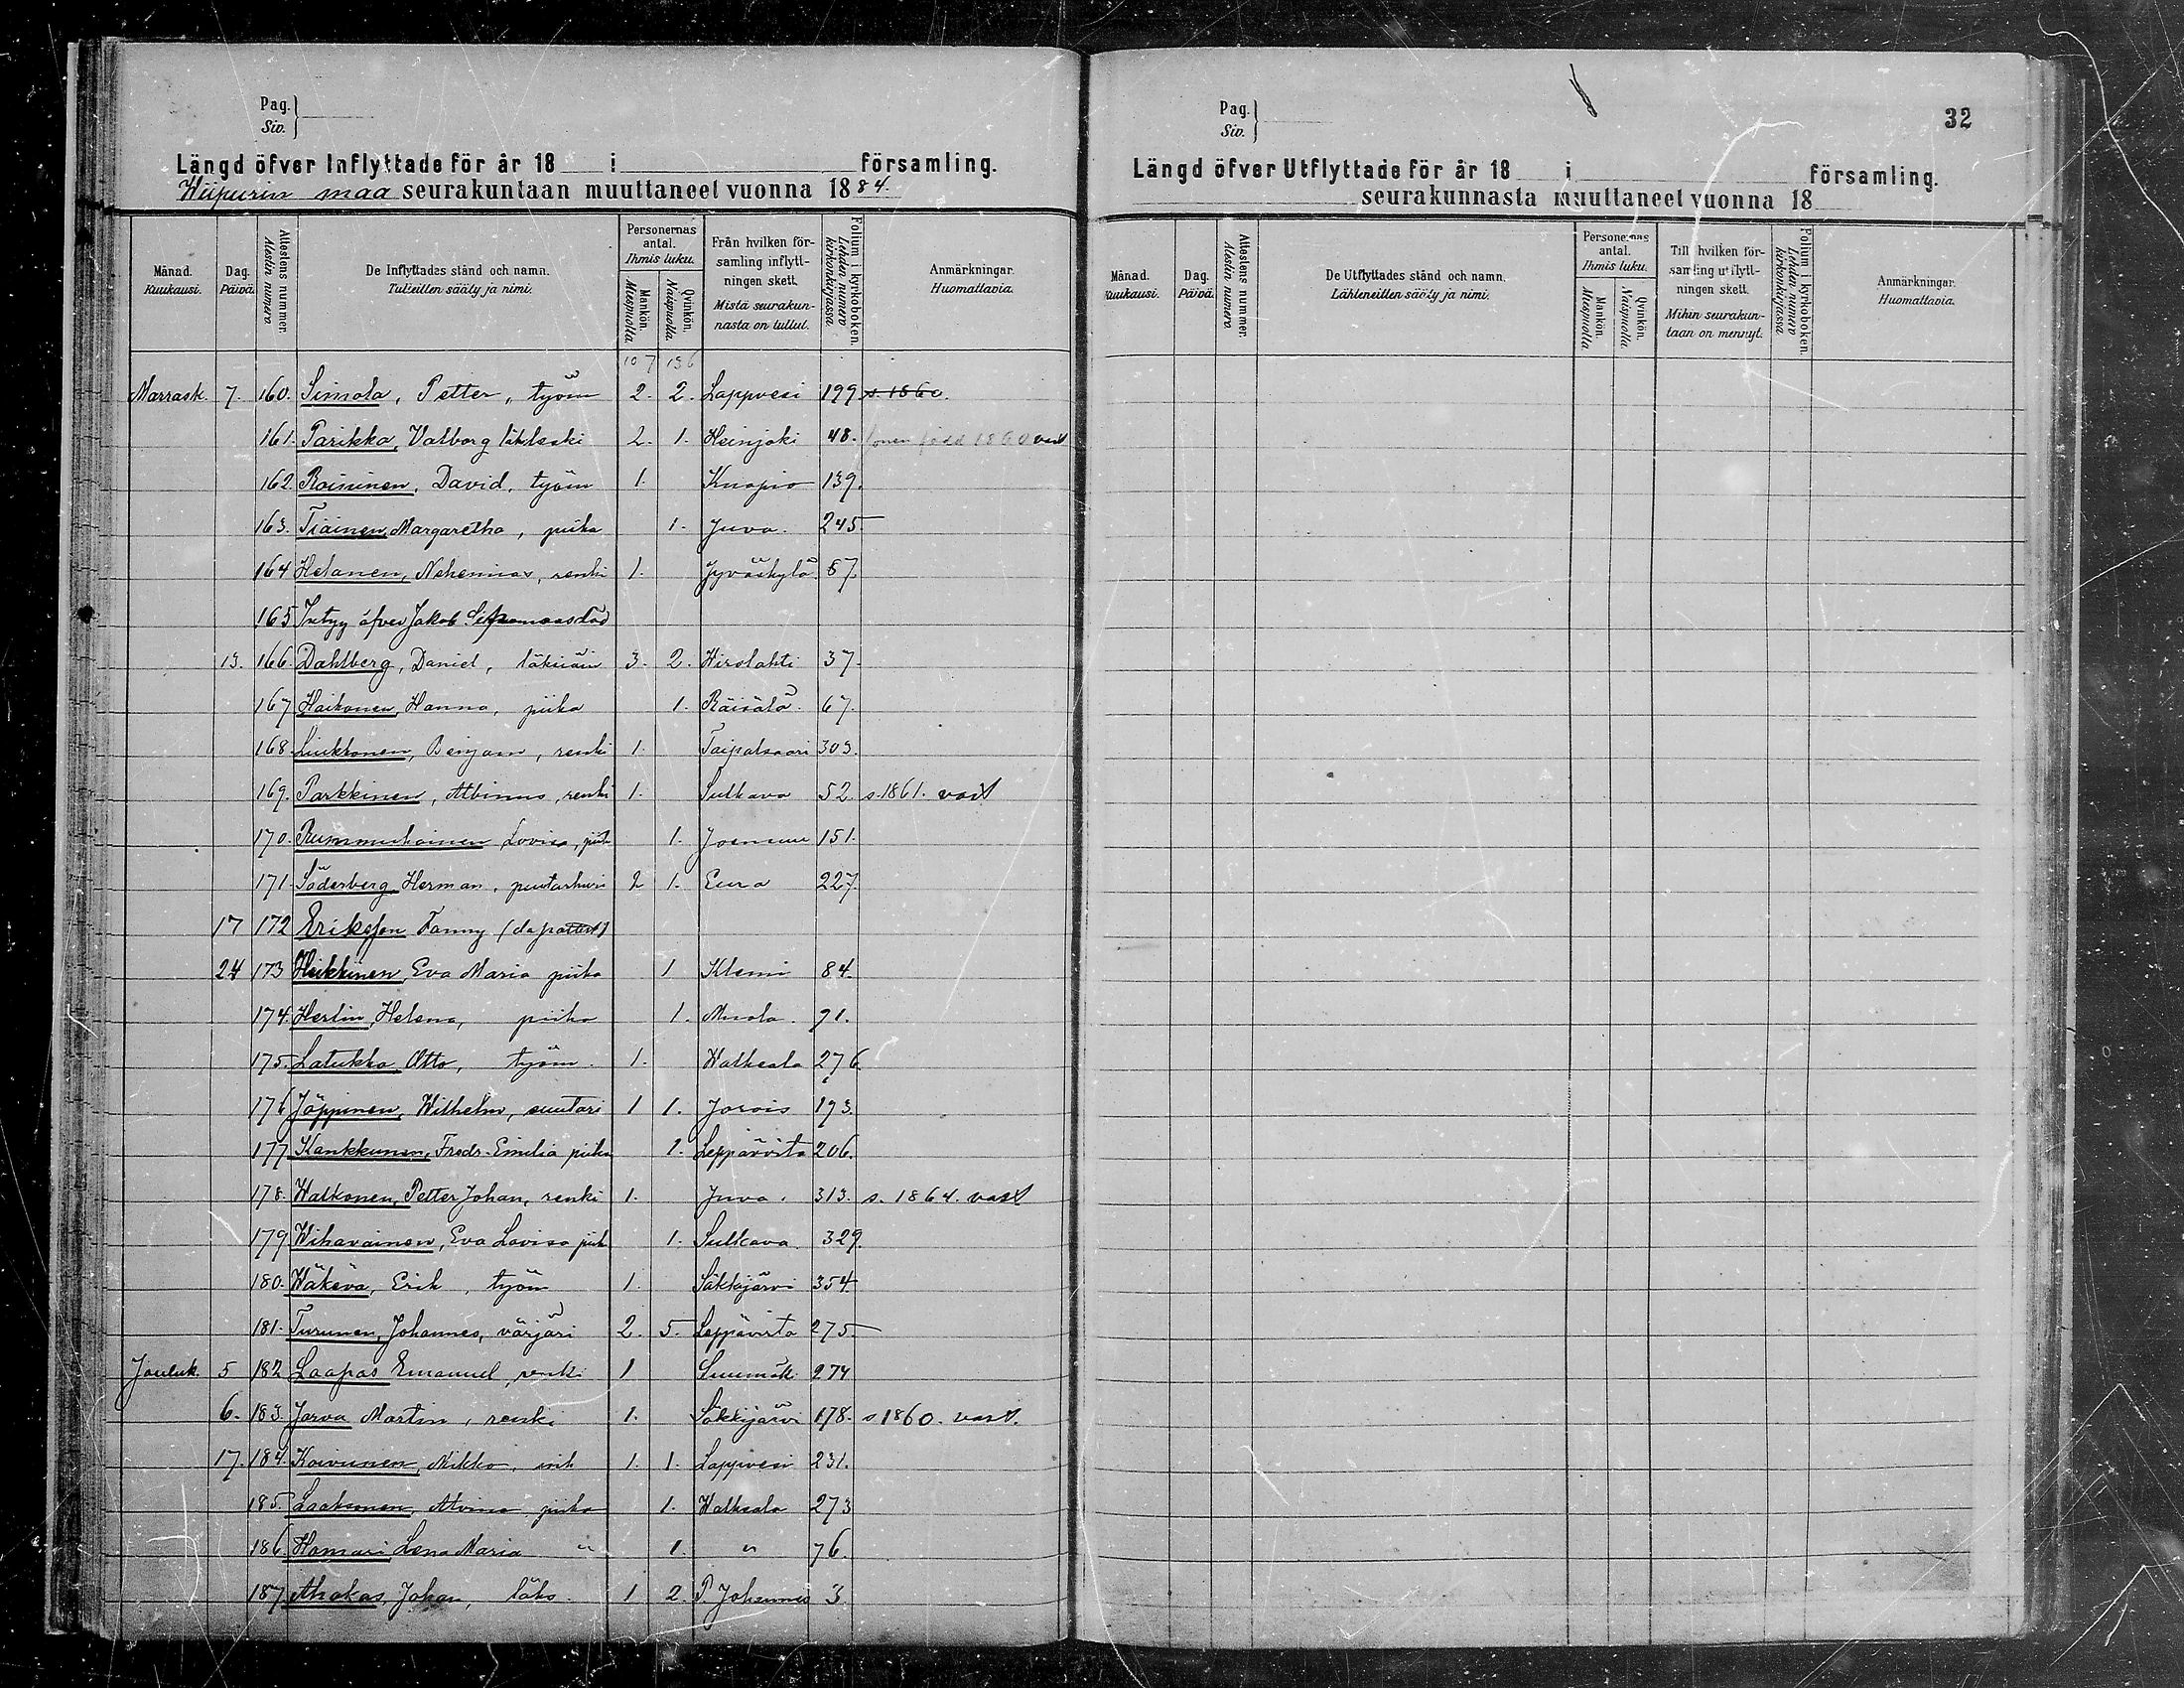 Pag.
Siv.
Längd öfver Inflyttade för år 18 i församling.
Wiipurin maa seurakuntaan muuttaneet vuonna 1884.
Månad. Kuukausi.
Dag. Päivä.
Attestens nummer. Alestin numero
De Inflyttades stånd och namn. Tulleitten sääty ja nimi.
Personernas antal. Ihmis luku.
Mankön. Miespuolia
Qvinkön. Naispuolia
Från hvilken församling inflyttningen skett. Mistä seurakunnasta on tullut.
Folium i kyrkoboken. Lehden numero kirkonkirjassa
Anmärkningar. Huomattavia.
107 136
Marrask. 7. 160. Simola, Petter, työm 2. 2. Lappvesi 199 s. 1860.
161. Parikka, Valborg 2. 1. Heinjoki 48. född 1860 vast
162. Roininen, David, työm 1. Kuopio 139.
163. Tiainen, Margaretha, piika 1. Juva. 245
164 Helanen, Nehemias, renki 1. Jyväskylä 87.
165 Intyg öfver Jakob
13. 166. Dahlberg, Daniel, 3. 2. Wirolahti 37.
167 Haikonen, Hanna, piika 1. Räisälä 67.
168. Liukkonen, Benjam, renki 1. Taipalsaari 303.
169. Parkkinen, Albinus, renki 1. Sulkava 52. s. 1861. vast
170. Rummukainen Lovisa, piik 1. Joensuu 151.
171. Söderberg, Herman, puutarhuri 2 1. Eura 227.
17 172 Eriksson Fanny
24 173 Heikkinen Eva Maria piika 1 Klemi 84.
174. Herlin, Helena, piika 1. Muola. 91.
175. Latukka, Otto, työm. 1. Walkeala 276
176 Jäppinen, Wilhelm, suutari 1 1. Jorois 193.
177 Kankkunen, Fredr. Emilia piika 1. Leppävirta 206.
178. Walkonen, Petter Johan, renki 1. Juva. 313. s. 1864. vast
179 Wihavainen, Eva Lovisa piik 1. Sulkava. 329.
180. Wäkevä, Erik, työm 1. Säkkijärvi 354.
181. Turunen, Johannes, värjäri 2. 5. Leppävirta 275
Jouluk. 5 182 Laapas Emanuel, renki 1 Luumäk 274
6. 183. Jarva Martin, renki 1. Säkkijärvi 178. s 1860. vast.
17. 184. Koivunen, Mikko, 1. 1. Lappvesi 231.
185. Laaksonen, Alvina piika 1. Walkeala 273
186. Homari Lena Maria " 1. " 76.
187. Ahokas, Johan, läks. 1 2. P. Johannes 3
Pag.
Siv.
32
Längd öfver Utflyttade för år 18 i församling.
seurakunnasta muuttaneet vuonna 18
Månad. Kuukausi.
Dag. Päivä.
Attestens nummer. Alestin numero
De Utflyttades stånd och namn. Lähteneitten sääty ja nimi.
Personernas antal. Ihmis luku.
Mankön. Miespuolia
Qvinkön. Naispuolia
Till hvilken församling utflyttningen skett. Mihin seurakuntaan on mennyt.
Folium i kyrkoboken. Lehden numero kirkonkirjassa
Anmärkningar. Huomattavia.